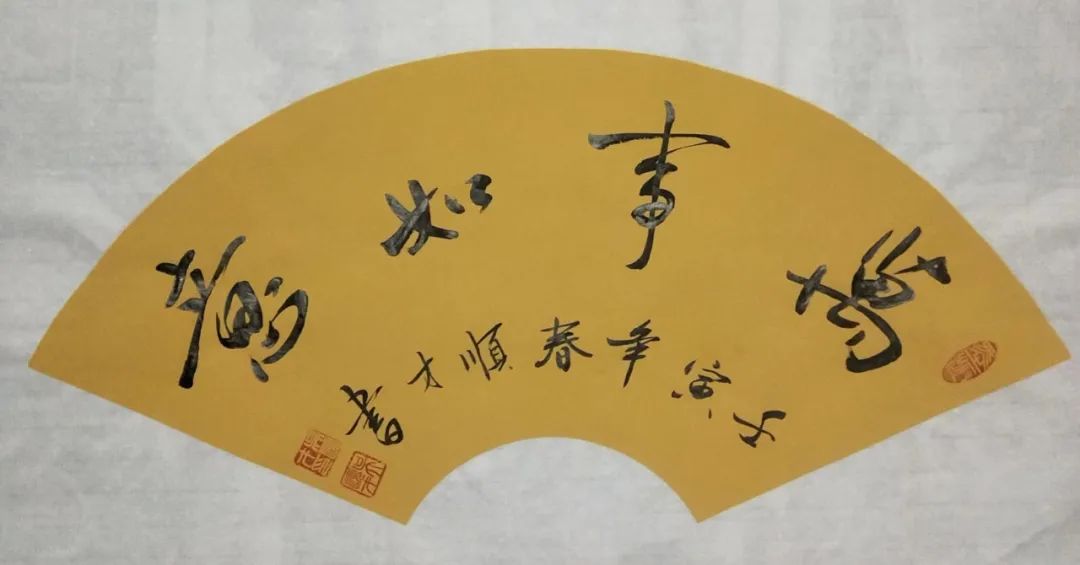 萬事如意
壬寅年春順才書